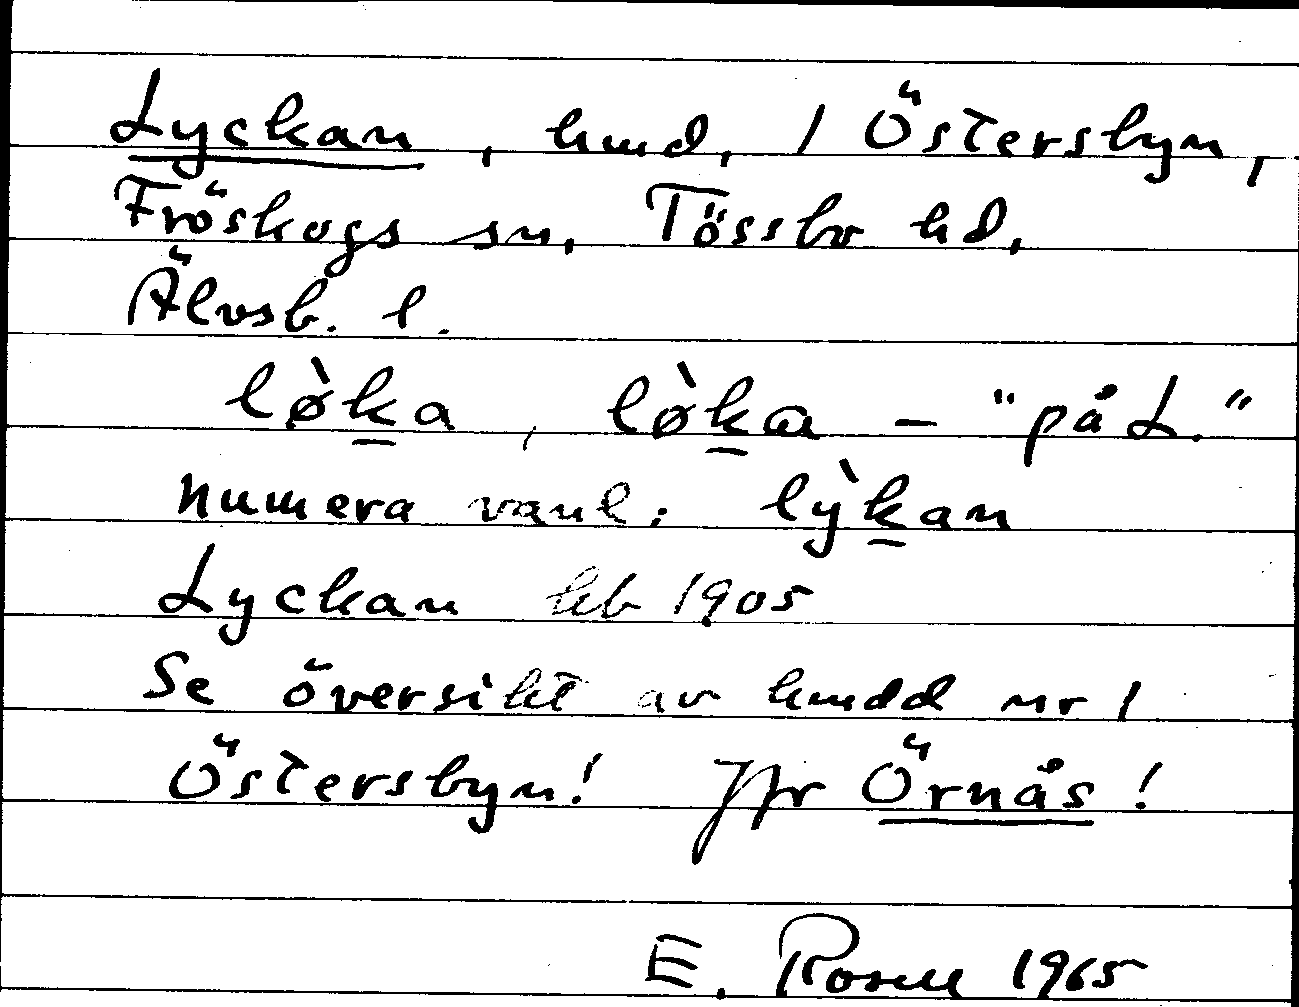 Lyckan, hmd, 1 Östersbyn,
Fröskogs sn, Tössbo hd,
Älvsb. l.
lø̀k̲a, lø̀k̲a - "på L."
numera vanl: lỳk̲an
Lyckan hb 1905
Se översikt av hmdd nr 1
Östersbyn! Jfr Örnås!
E. Rosell 1965